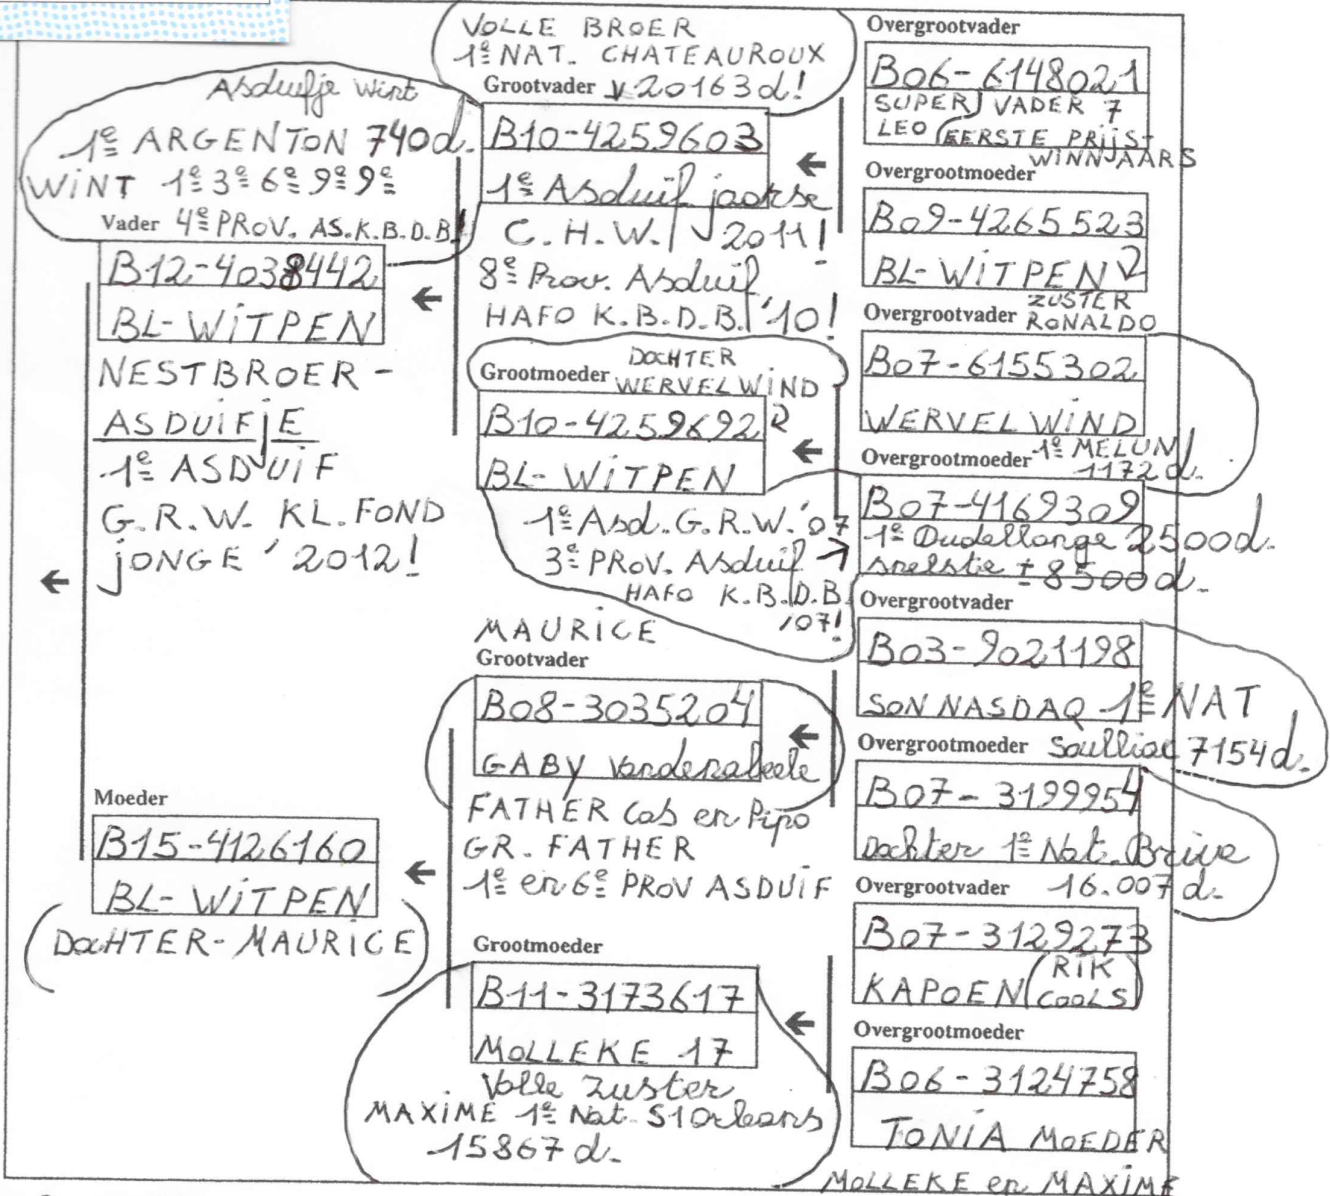 Asduifje Wint
1e ARGENTON 740d.
WINT 1e 3e 6e 9e 9e
Vader 4e PROV. AS.K.B.D.B.!
B12-4038442
BL-WITPEN
NESTBROER-
ASDUIFJE
1e ASDUIF
G.R.W. KL.FOND
JONGE '2012!
Moeder
B15-4126160
BL-WITPEN
(DOCHTER-MAURICE)
VOLLE BROER
1e NAT. CHATEAUROUX
Grootvader 20163d!
B10-4259603
1e Asduif jaarse
C.H.W. 2011!
8e Prov. Asduif
HAFO K.B.D.B. '10!
DOCHTER
Grootmoeder WERVELWIND
B10-4259692
BL-WITPEN
1e Asd. G.R.W. '07
3e PROV. Asduif
HAFO K.B.D.B.
'07!
MAURICE
Grootvader
B08-3035204
GABY Vandenabeele
FATHER Cas en Pipo
GR. FATHER
1e en 6e PROV ASDUIF
Grootmoeder
B11-3173617
MOLLEKE 17
Volle Zuster
MAXIME 1e Nat. S1 Orleans
15867 d.
Overgrootvader
B06-6148021
SUPER VADER 7
LEO EERSTE PRIJST
WINNJAARS
Overgrootmoeder
B09-4265523
BL-WITPEN
ZUSTER
Overgrootvader RONALDO
B07-6155302
WERVELWIND
Overgrootmoeder 1e MELUN
1172 d.
B07-4169309
1e Dudellange 2500d.
snelste ± 8500d.
Overgrootvader
B03-9021198
SON NASDAQ 1e NAT
Overgrootmoeder Soulliac 7154d.
B07-3199954
Dochter 1e Nat. Brive
Overgrootvader 16.007 d.
B07-3129273
KAPOEN (RIK
COOLS)
Overgrootmoeder
B06-3124758
TONIA MOEDER
MOLLEKE en MAXIME